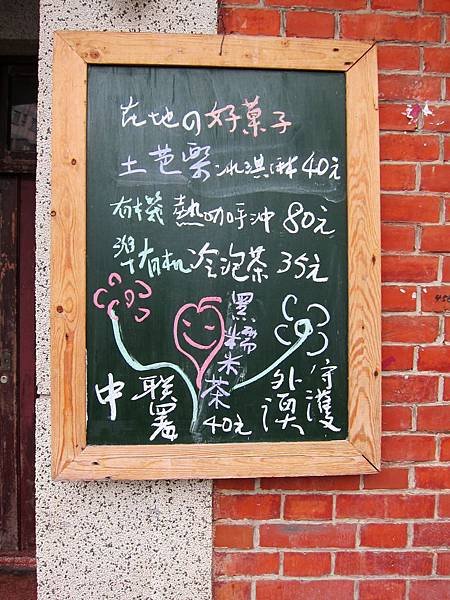 在地の好菓子
土芭樂冰淇淋40元
有機熱咖啡沖80元
準有机冷泡茶35元
黑糯米茶
40元
守護
外澳
聯署
中